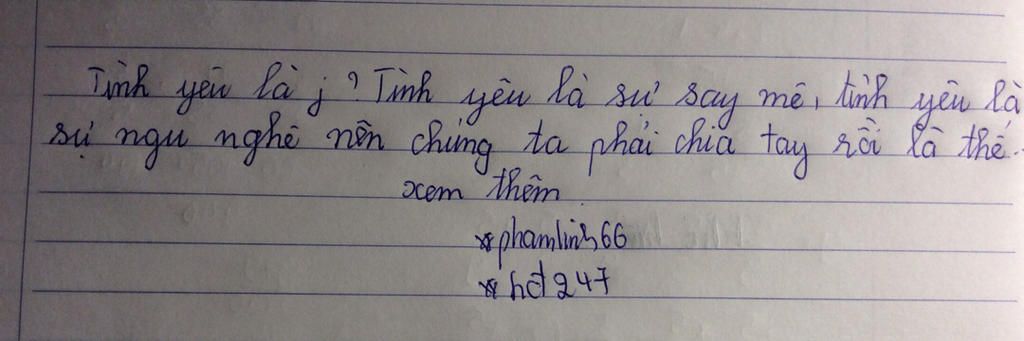 Tình yêu là j? Tình yêu là sự say mê, tình yêu là
sự ngu nghê nên chúng ta phải chia tay rồi là thế.
xem thêm
*phamlinh66
*hd247